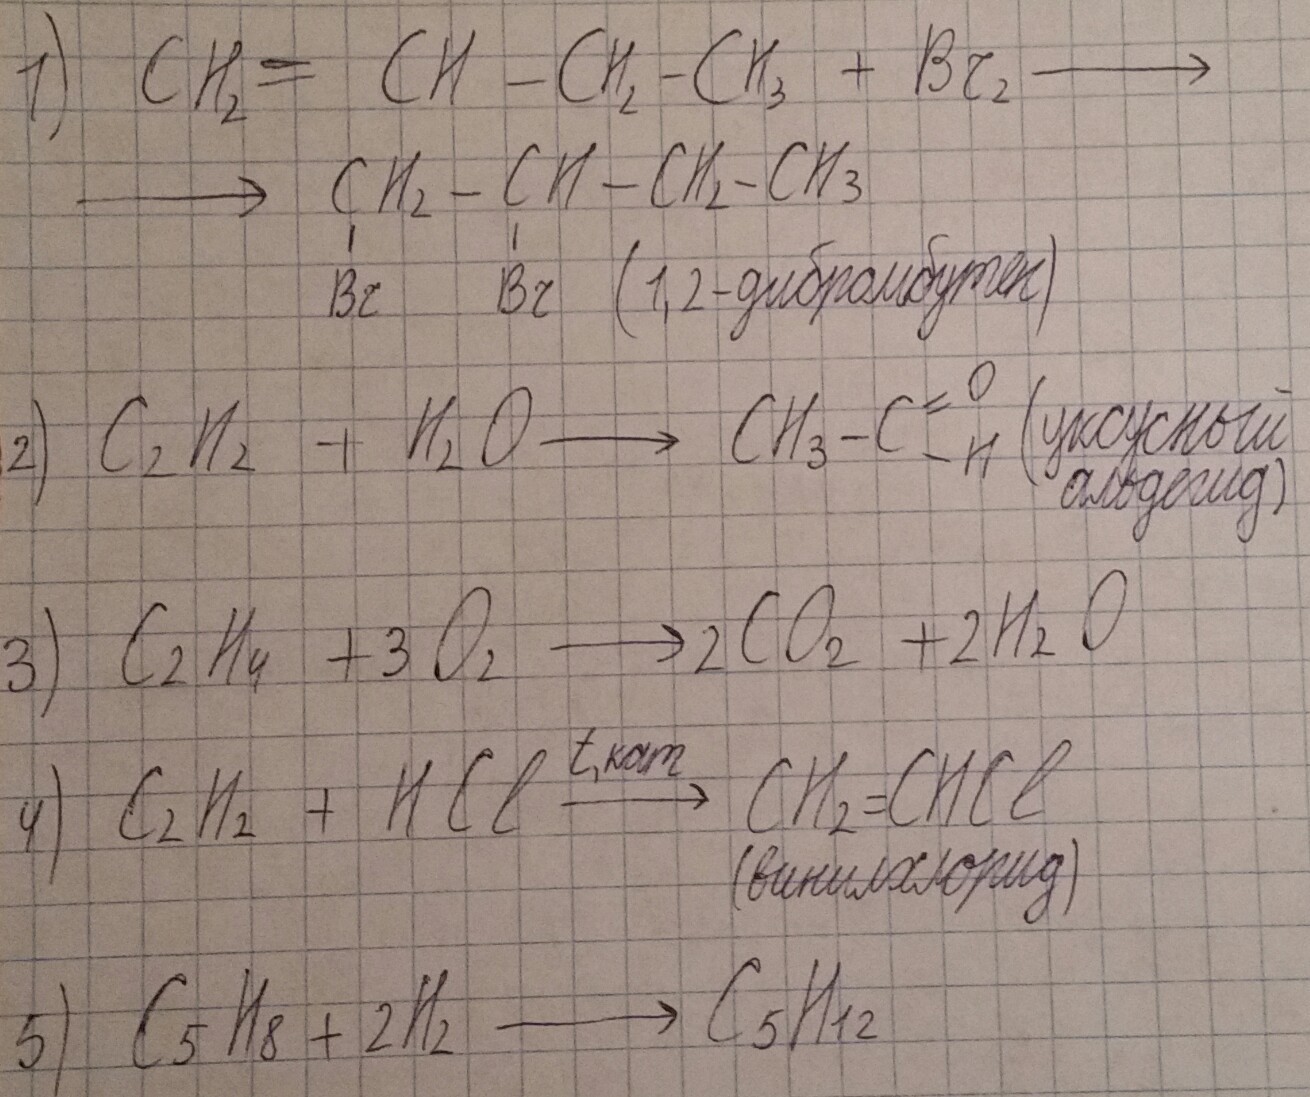 1) CH₂ = CH – CH₂ – CH₃ + Br₂ ⟶
⟶ CH₂ – CH – CH₂ – CH₃
Br Br (1,2-дибромбутен)
2) C₂H₂ + H₂O ⟶ CH₃ – C =O –H (уксусный
альдегид)
3) C₂H₄ + 3O₂ ⟶ 2CO₂ + 2H₂O
4) C₂H₂ + HCl t, кат ⟶ CH₂=CHCl
(винилхлорид)
5) C₅H₈ + 2H₂ ⟶ C₅H₁₂